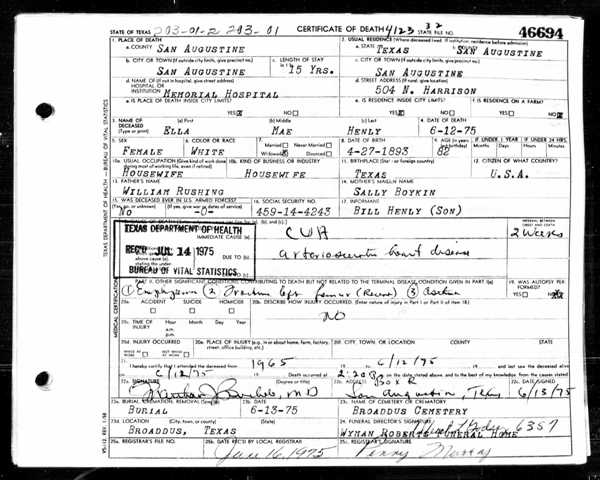 STATE OF TEXAS 203-01-2 203-01 CERTIFICATE OF DEATH 4123 32 STATE FILE NO. 46694
1. PLACE OF DEATH 2. USUAL RESIDENCE (Where deceased lived. If institution: residence before admission)
a. COUNTY SAN AUGUSTINE a. STATE TEXAS b. COUNTY SAN AUGUSTINE
b. CITY OR TOWN (If outside city limits, give precinct no.) c. LENGTH OF STAY c. CITY OR TOWN (If outside city limits, give precinct no.)
SAN AUGUSTINE 15 YRS. SAN AUGUSTINE
d. NAME OF (If not in hospital, give street address) d. STREET ADDRESS
HOSPITAL OR INSTITUTION MEMORIAL HOSPITAL 504 N. HARRISON
e. IS PLACE OF DEATH INSIDE CITY LIMITS? YES NO e. IS RESIDENCE INSIDE CITY LIMITS? YES NO f. IS RESIDENCE ON A FARM? YES NO
3. NAME OF DECEASED (Type or print) (a) First (b) Middle (c) Last 4. DATE OF DEATH
ELLA MAE HENLY 6-12-75
5. SEX 6. COLOR OR RACE 7. Married Never Married Widowed Divorced 8. DATE OF BIRTH 9. AGE IF UNDER 1 YEAR IF UNDER 24 HRS.
FEMALE WHITE 4-27-1893 82 Months Days Hours Min.
10a. USUAL OCCUPATION (Give kind of work done during most of working life, even if retired) 10b. KIND OF BUSINESS OR INDUSTRY 11. BIRTHPLACE (State or foreign country) 12. CITIZEN OF WHAT COUNTRY?
HOUSEWIFE HOUSEWIFE TEXAS U.S.A.
13. FATHER'S NAME 14. MOTHER'S MAIDEN NAME
WILLIAM RUSHING SALLY BOYKIN
15. WAS DECEASED EVER IN U.S. ARMED FORCES? 16. SOCIAL SECURITY NO. 17. INFORMANT
(Yes, no, or unknown) (If yes, give war or dates of service)
NO -0- 459-14-4243 BILL HENLY (SON)
TEXAS DEPARTMENT OF HEALTH
IMMEDIATE CAUSE (a) CVA 2 Weeks
REC'D JUL 14 1975 DUE TO (b) arteriosclerotic heart disease
BUREAU OF VITAL STATISTICS DUE TO (c)
PART II. OTHER SIGNIFICANT CONDITIONS CONTRIBUTING TO DEATH BUT NOT RELATED TO THE TERMINAL DISEASE CONDITION GIVEN IN PART I(a) 19. WAS AUTOPSY PERFORMED?
① Emphysema ② Fracture left femur (Recent) ③ YES NO
20a. ACCIDENT SUICIDE HOMICIDE 20b. DESCRIBE HOW INJURY OCCURRED. (Enter nature of injury in Part I or Part II of item 18.)
NO
20c. TIME OF INJURY Hour Month Day Year
a.m.
p.m.
20d. INJURY OCCURRED 20e. PLACE OF INJURY (e.g., in or about home, farm, factory, street, office building, etc.) 20f. CITY, TOWN, OR LOCATION COUNTY STATE
WHILE AT WORK NOT WHILE AT WORK
21. I hereby certify that I attended the deceased from 1965 6/12/75 and last saw the deceased alive
6/12/75 Death occurred at 2:20 on the date stated above, and to the best of my knowledge, from the causes stated
22a. SIGNATURE (Degree or title) 22b. ADDRESS Box R 22c. DATE SIGNED
M D San Augustine, Texas 6/13/75
23a. BURIAL, CREMATION, REMOVAL (Specify) 23b. DATE 23c. NAME OF CEMETERY OR CREMATORY
BURIAL 6-13-75 BROADDUS CEMETERY
23d. LOCATION (City, town, or county) (State) 24. FUNERAL DIRECTOR'S SIGNATURE
BROADDUS, TEXAS WYMAN ROBERTS FUNERAL HOME 6357
25a. REGISTRAR'S FILE NO. 25b. DATE REC'D BY LOCAL REGISTRAR 25c. REGISTRAR'S SIGNATURE
June 16, 1975 Penny Murray
TEXAS DEPARTMENT OF HEALTH — BUREAU OF VITAL STATISTICS
MEDICAL CERTIFICATION
VS-112 REV. 1-58